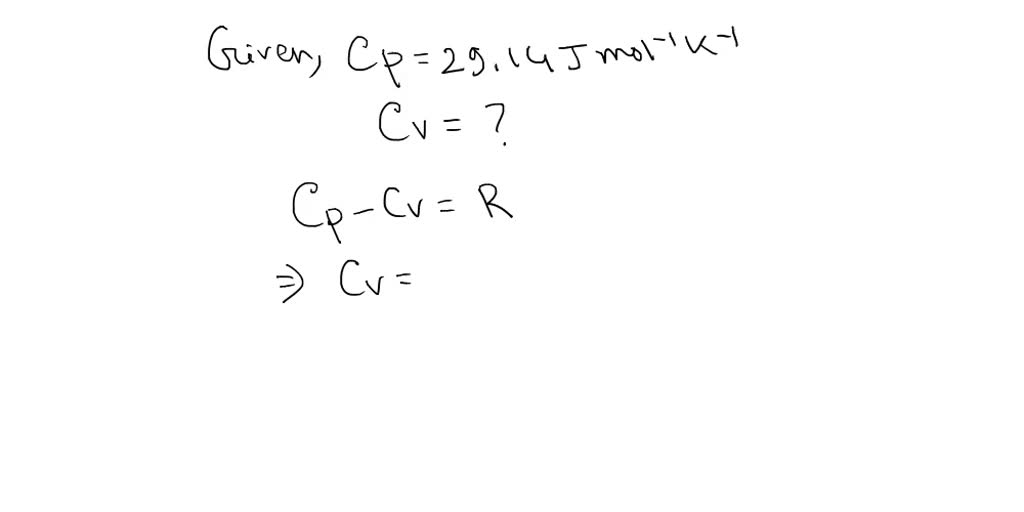 Given, Cp = 29.14 J mol⁻¹ K⁻¹
Cv = ?
Cp - Cv = R
⇒ Cv =